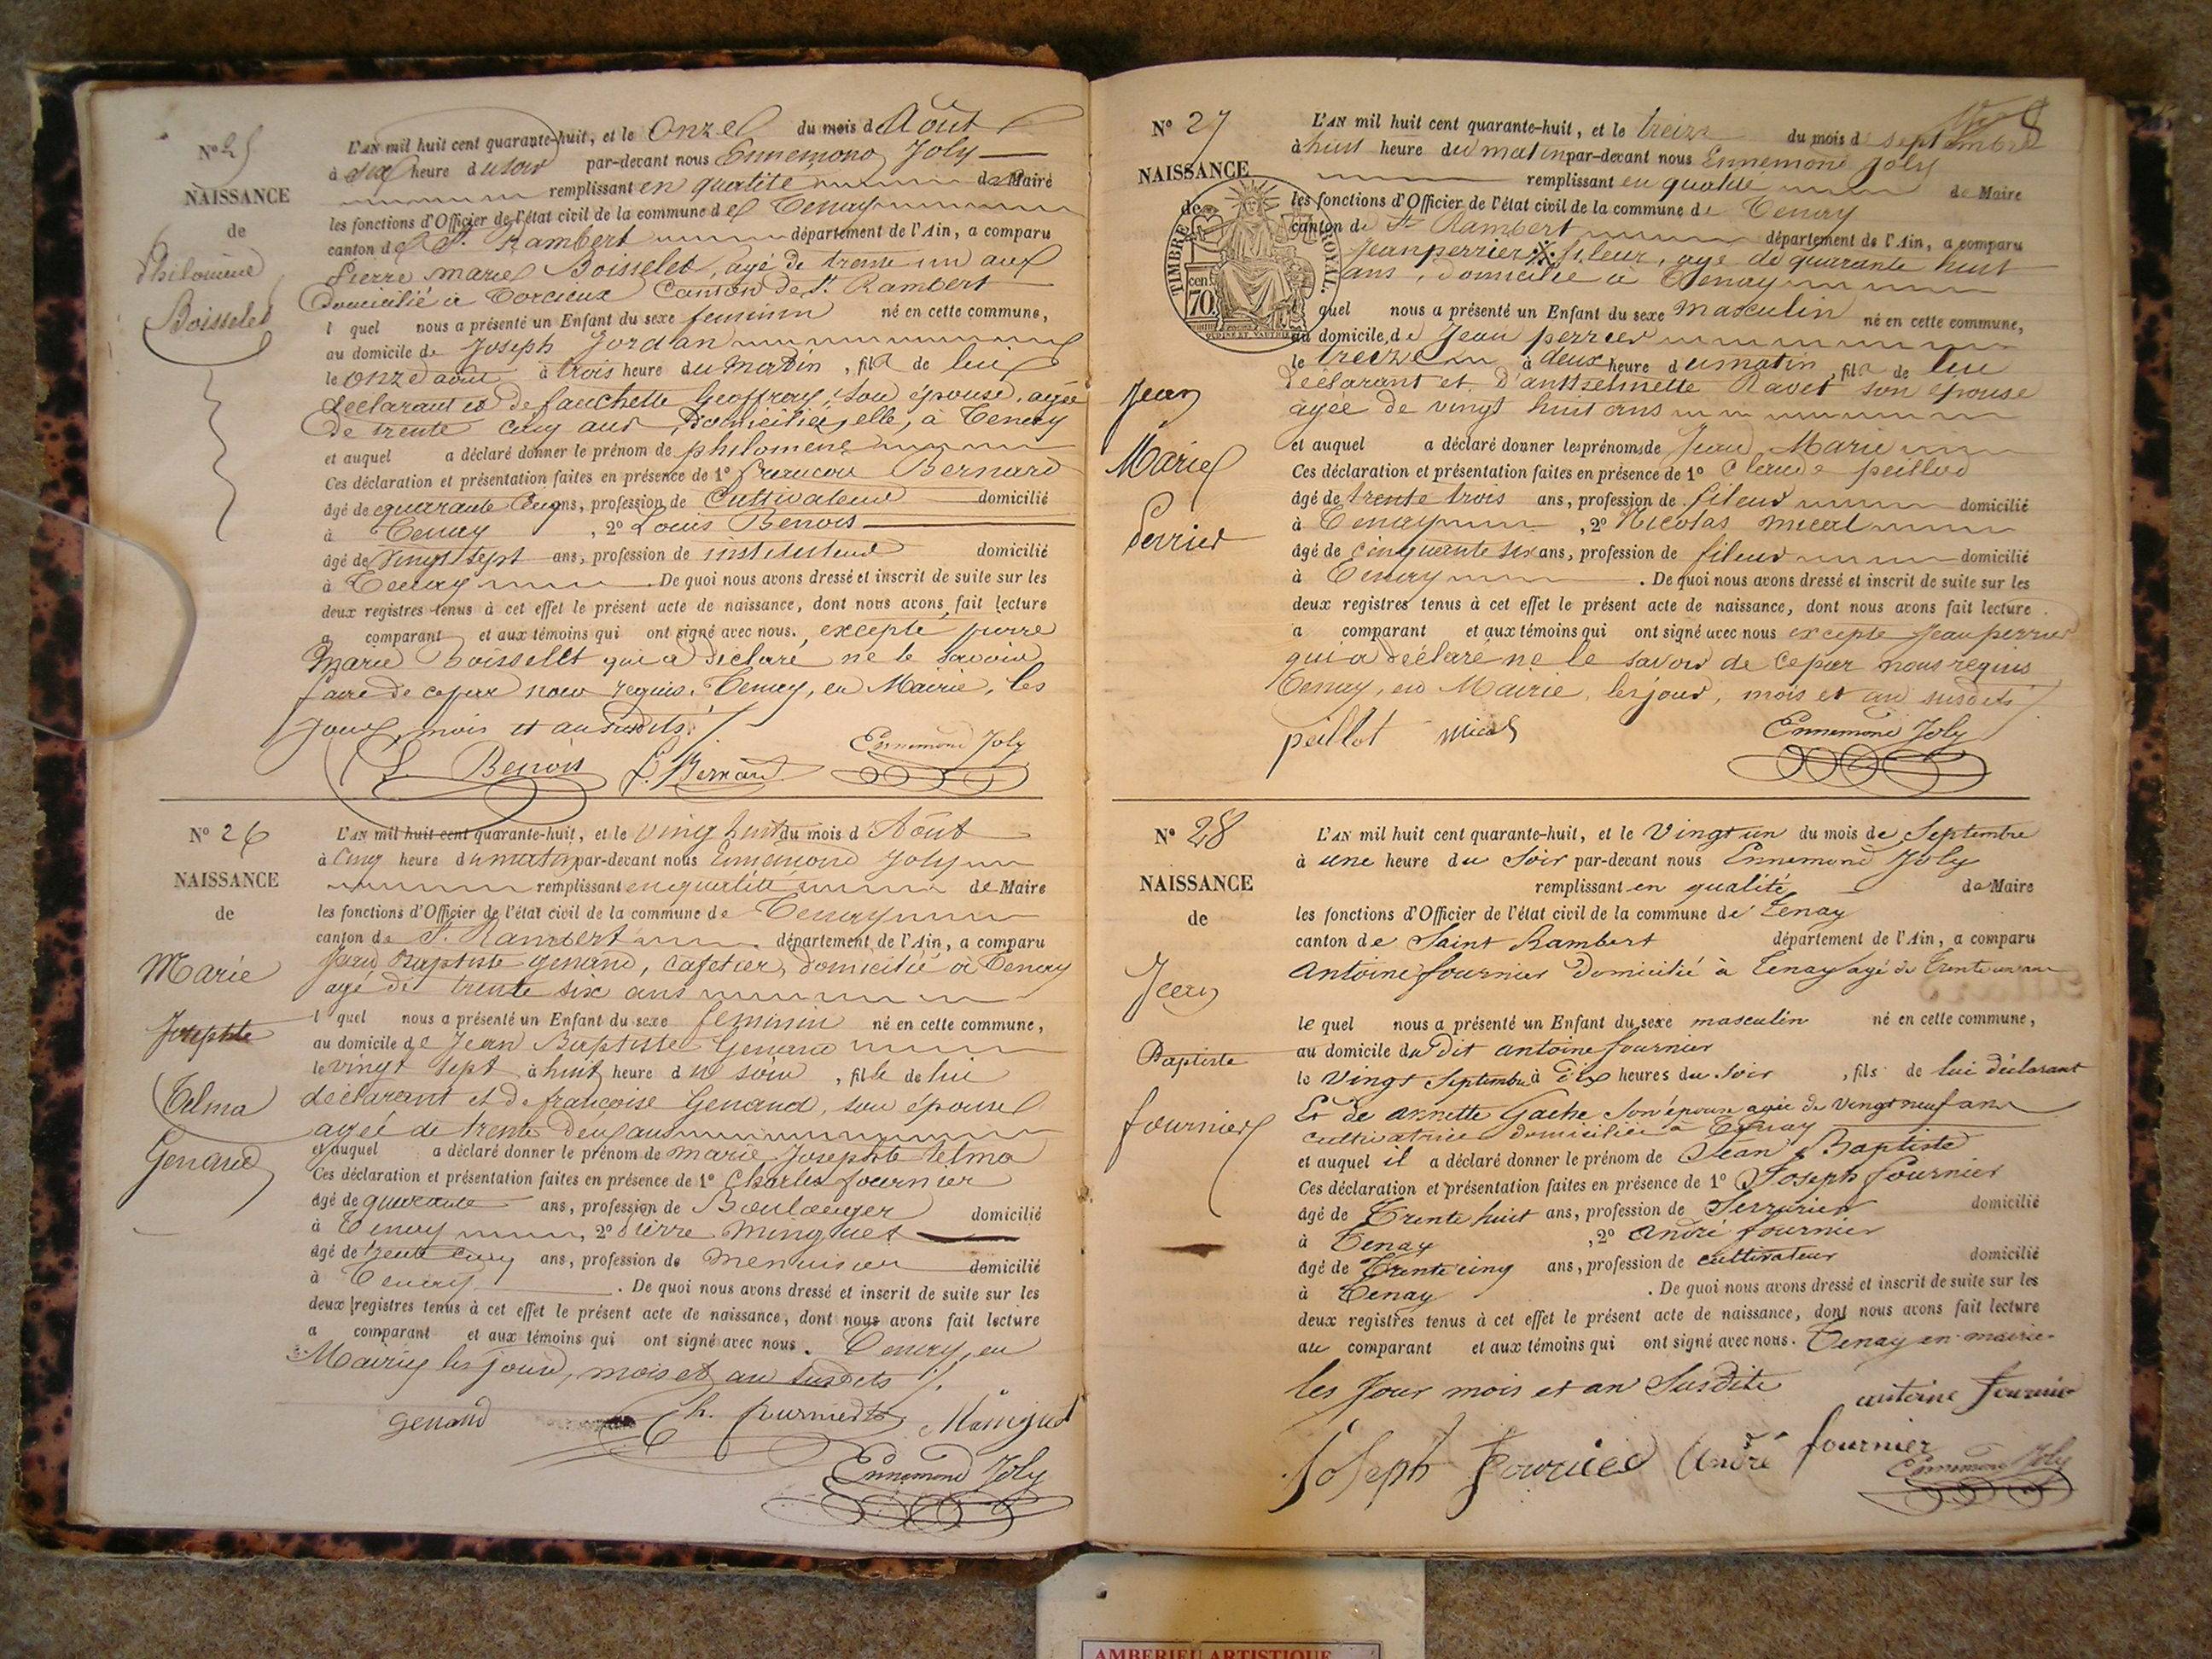 N° 25
NAISSANCE
de
Philomène
Boisselet
L'AN mil huit cent quarante-huit, et le onze du mois d Août
à six heure du soir par-devant nous Ennemond Joly
remplissant en qualité de Maire
les fonctions d'Officier de l'état civil de la commune de Tenay
canton de St. Rambert département de l'Ain, a comparu
Pierre marie Boisselet, agé de trente un ans
Domicilié à Torcieux Canton de St. Rambert
l quel nous a présenté un Enfant du sexe feminin né en cette commune,
au domicile de Joseph Jordan
le onze août à trois heure du matin, fil de lui
declarant et de fanchette Geoffray, son épouse, agée
de trente cinq ans, Domiciliée, elle, à Tenay
et auquel a déclaré donner le prénom de philomène
Ces déclaration et présentation faites en présence de 1° francois Bernard
âgé de quarante cinq ans, profession de Cultivateur domicilié
à Tenay, 2° Louis Benois
âgé de vingt sept ans, profession de instituteur domicilié
à Tenay. De quoi nous avons dressé et inscrit de suite sur les
deux registres tenus à cet effet le présent acte de naissance, dont nous avons fait lecture
a comparant et aux témoins qui ont signé avec nous. excepté pierre
Marie Boisselet qui a déclaré ne le savoir
faire de ce par nous requis. Tenay, en Mairie, les
jour, mois et an susdits.
L. Benois f. Bernard Ennemond Joly
N° 26
NAISSANCE
de
Marie
Josephte
Telma
Genand
L'AN mil huit cent quarante-huit, et le vingt huit du mois d'Août
à cinq heure du matin par-devant nous Ennemond Joly
remplissant en qualité de Maire
les fonctions d'Officier de l'état civil de la commune de Tenay
canton de St. Rambert département de l'Ain, a comparu
Jean Baptiste Genand, cafetier, domicilié à Tenay
agé de trente six ans
l quel nous a présenté un Enfant du sexe feminin né en cette commune,
au domicile de Jean Baptiste Genand
le vingt sept à huit heure du soir, fille de lui
déclarant et de françoise Genand, son épouse
agée de trente deux ans
et auquel a déclaré donner le prénom de marie Josephte telma
Ces déclaration et présentation faites en présence de 1° Charles fournier
âgé de quarante ans, profession de Boulanger domicilié
à Tenay, 2° Pierre Minguet
âgé de trente cinq ans, profession de Menuisier domicilié
à Tenay. De quoi nous avons dressé et inscrit de suite sur les
deux registres tenus à cet effet le présent acte de naissance, dont nous avons fait lecture
a comparant et aux témoins qui ont signé avec nous. Tenay, en
Mairie les jour, mois et an susdits
genand Ch. fournier Minguet
Ennemond Joly
N° 27
NAISSANCE
de
TIMBRE ROYAL.
70 cent
Jean
Marie
Perrier
L'AN mil huit cent quarante-huit, et le treize du mois d septembre
à huit heure du matin par-devant nous Ennemond Joly
remplissant en qualité de Maire
les fonctions d'Officier de l'état civil de la commune de Tenay
canton de St. Rambert département de l'Ain, a comparu
Jean perrier fileur, agé de quarante huit
ans, domicilié à Tenay
quel nous a présenté un Enfant du sexe masculin né en cette commune,
au domicile de Jean perrier
le treize à deux heure du matin, fil de lui
déclarant et d'antthelmette Ravet son épouse
agée de vingt huit ans
et auquel a déclaré donner les prénoms de Jean Marie
Ces déclaration et présentation faites en présence de 1° Claude peillod
âgé de trente trois ans, profession de fileur domicilié
à Tenay, 2° Nicolas micol
âgé de cinquante six ans, profession de fileur domicilié
à Tenay. De quoi nous avons dressé et inscrit de suite sur les
deux registres tenus à cet effet le présent acte de naissance, dont nous avons fait lecture
a comparant et aux témoins qui ont signé avec nous excepté Jean perrier
qui a déclaré ne le savoir de ce par nous requis
Tenay, en Mairie, les jour, mois et an susdits
peillot Micol Ennemond Joly
N° 28
NAISSANCE
de
Jean
Baptiste
fournier
L'AN mil huit cent quarante-huit, et le vingt un du mois de Septembre
à une heure du Soir par-devant nous Ennemond Joly
remplissant en qualité de Maire
les fonctions d'Officier de l'état civil de la commune de Tenay
canton de Saint Rambert département de l'Ain, a comparu
antoine fournier Domicilié à Tenay agé de Trente un an
le quel nous a présenté un Enfant du sexe masculin né en cette commune,
au domicile du Dit antoine fournier
le vingt Septembre à dix heures du Soir, fils de lui déclarant
Et de annette Gache Son épouse agée de vingt neuf ans
cultivatrice domiciliée à Tenay
et auquel il a déclaré donner le prénom de Jean Baptiste
Ces déclaration et présentation faites en présence de 1° Joseph fournier
âgé de Trente huit ans, profession de Serrurier domicilié
à Tenay, 2° André fournier
âgé de Trente cinq ans, profession de cultivateur domicilié
à Tenay. De quoi nous avons dressé et inscrit de suite sur les
deux registres tenus à cet effet le présent acte de naissance, dont nous avons fait lecture
au comparant et aux témoins qui ont signé avec nous. Tenay en mairie
les Jour mois et an Susdite
antoine fournier
Joseph fournier André fournier
Ennemond Joly
AMBERIEU ARTISTIQUE